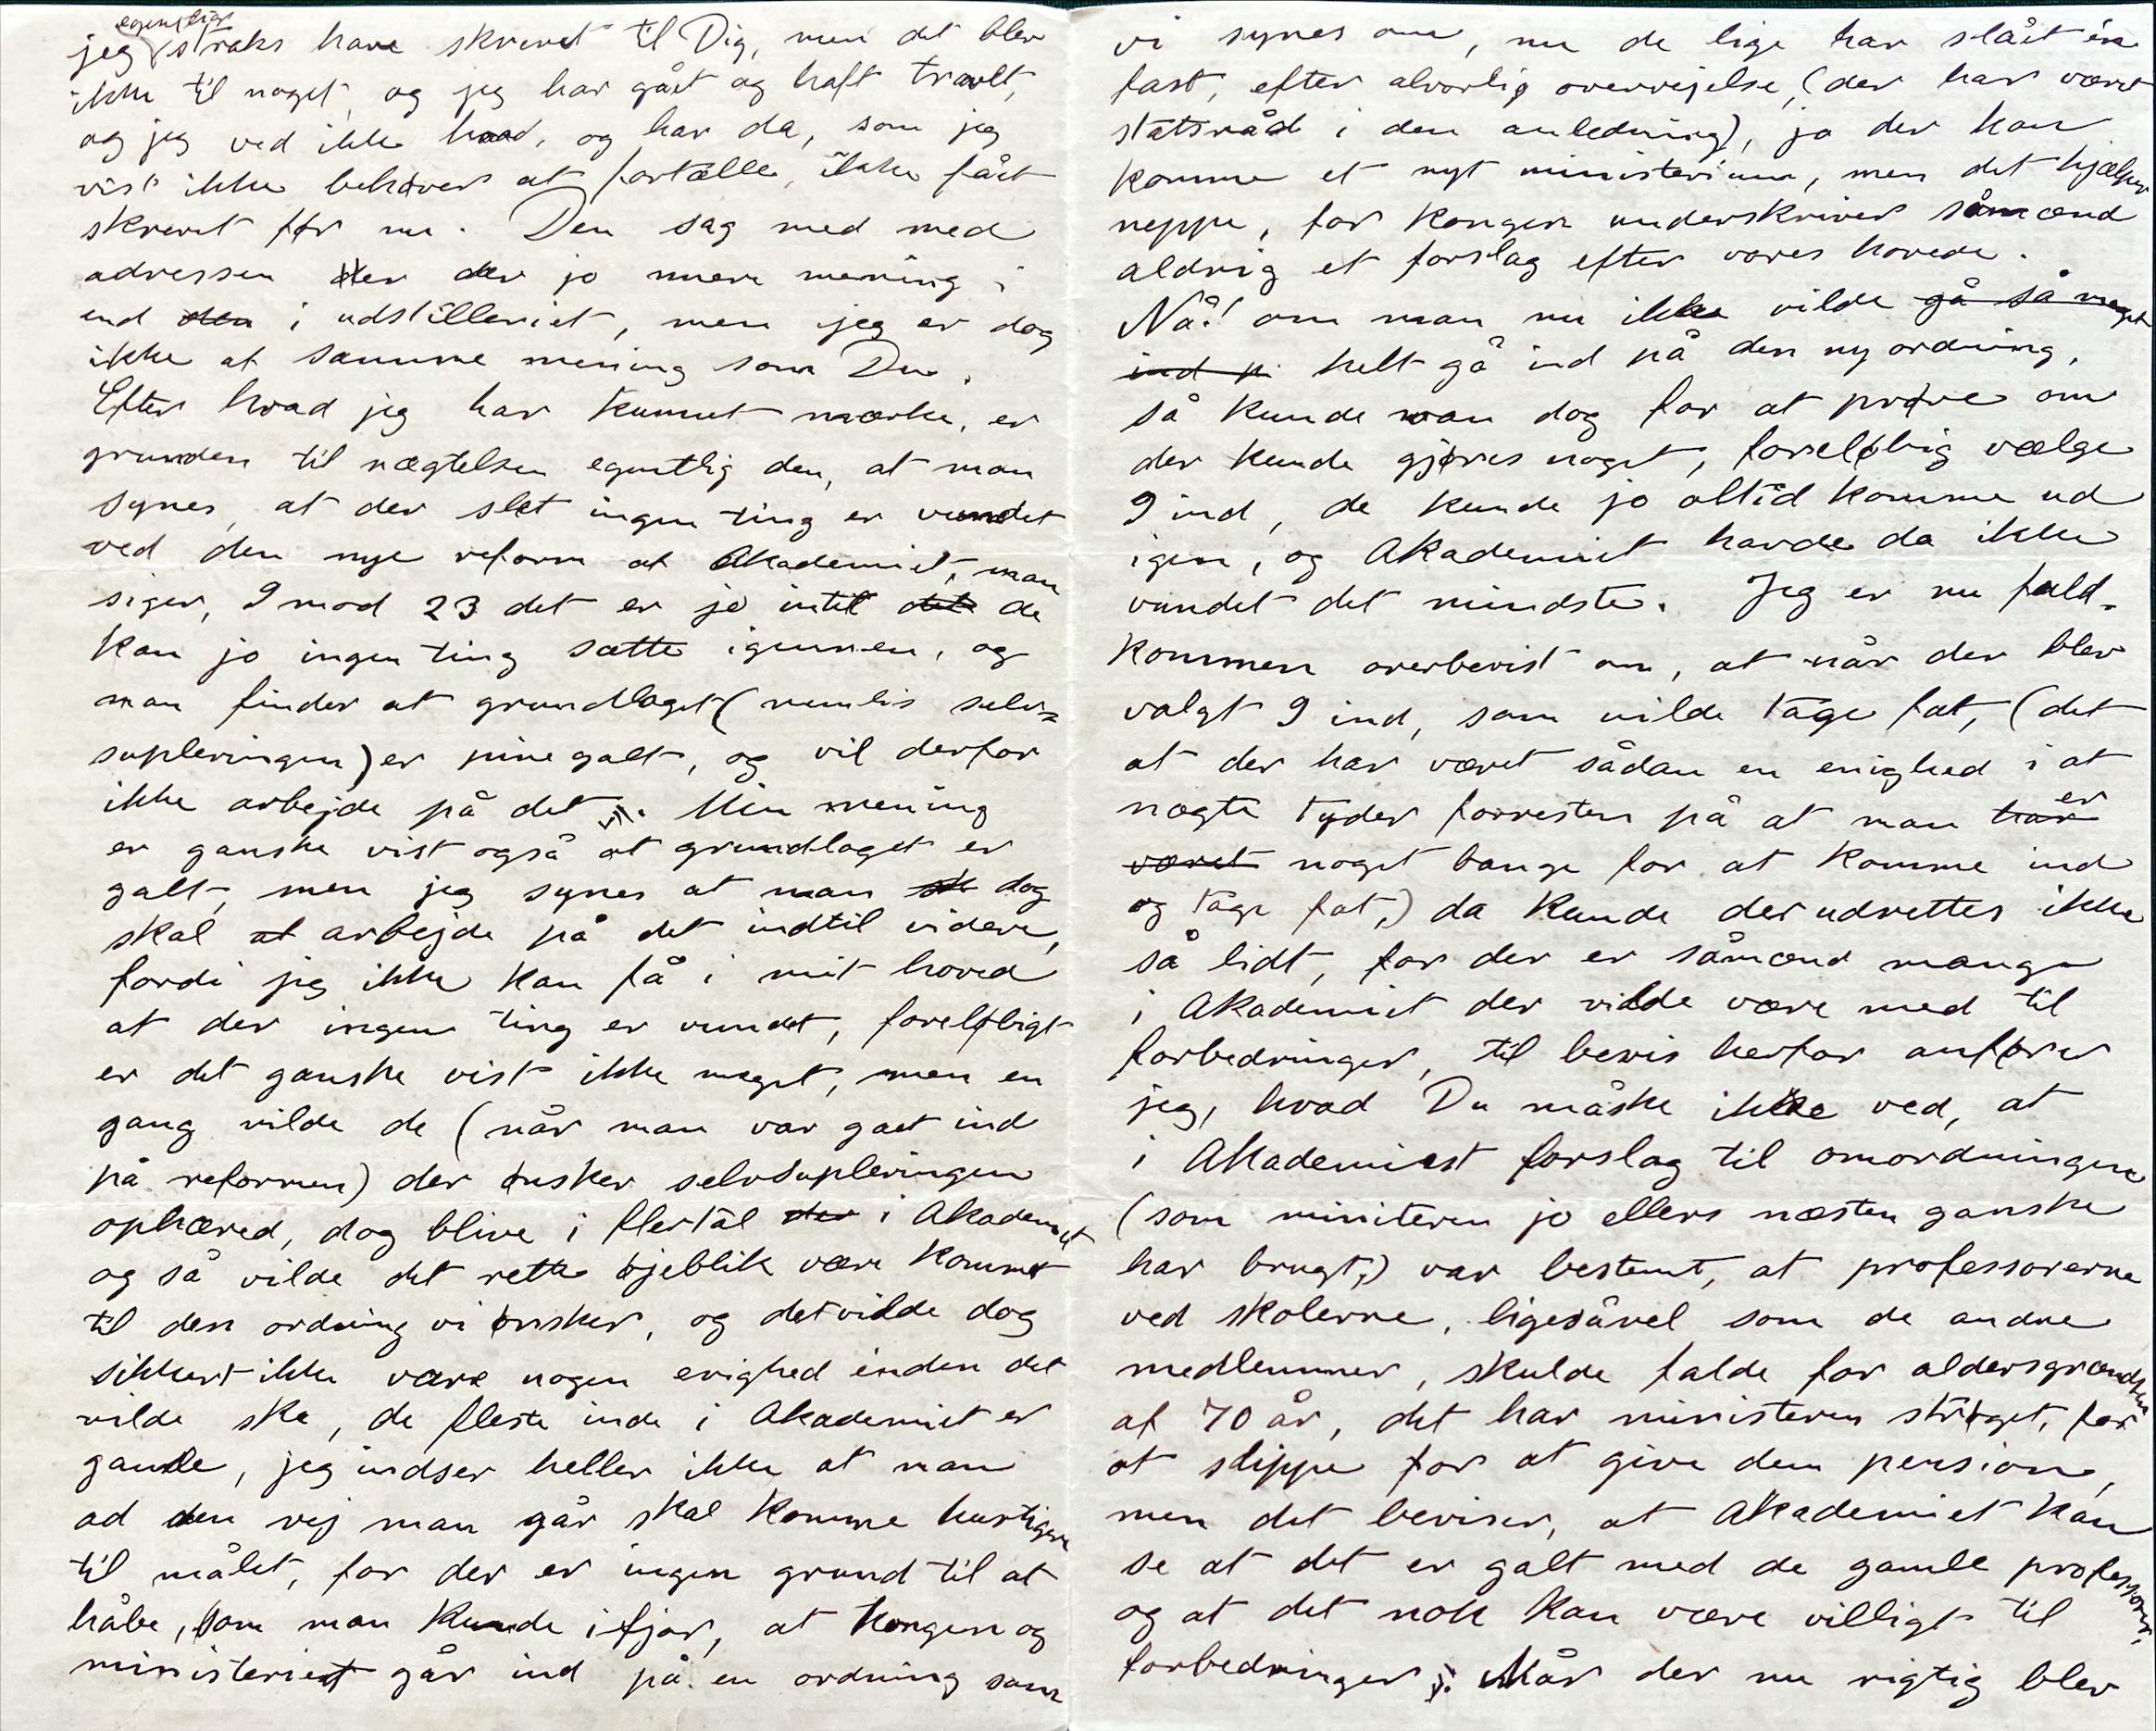 egentlig
jeg straks have skrevet til Dig, men det blev
ikke til noget, og jeg har gået og haft travlt,
og jeg ved ikke hvad, og har da, som jeg
vist ikke behøver at fortælle, ikke fået
skrevet før nu. Den sag med med
adressen der der jo mere mening i
end den i udstilleriet, men jeg er dog
ikke af samme mening som Du.
Efter hvad jeg har kunnet mærke, er
grunden til nægtelsen egentlig den, at man
synes, at der slet ingen ting er vundet
ved den nye reform af Akademiet, man
siger, 9 mod 23 det er jo intet det de
kan jo ingen ting sætte igennem, og
man finder at grundlaget (nemlig selv=
supleringen) er pinegalt, og vil derfor
ikke arbejde på det. Min mening
er ganske vist også at grundlaget er
galt, men jeg synes at man sk dog
skal at arbejde på det indtil videre,
fordi jeg ikke kan få i mit hoved
at der ingen ting er vundet, foreløbigt
er det ganske vist ikke meget, men en
gang vilde de (når man var gået ind
på reformen) der ønsker selvsupleringen
ophæved, dog blive i flertal der i Akademiet
og så vilde det rette øjeblik være kommet
til den ordning vi ønsker, og det vilde dog
sikkert ikke være nogen evighed inden det
vilde ske, de fleste inde i Akademiet er
gamle, jeg indser heller ikke at man
ad den vej man går skal komme hurtigere
til målet, for der er ingen grund til at
håbe, som man kunde ifjor, at kongen og
ministeriet går ind på en ordning som
vi synes om, nu de lige har slået én
fast, efter alvorlig overvejelse, (der har været
statsråd i den anledning), ja der kan
komme et nyt ministerium, men det hjælper
neppe, for kongen underskriver såmænd
aldrig et forslag efter vores hovede.
Nå! om man nu ikke vilde gå så meget
ind p helt gå ind på den ny ordning,
så kunde man dog for at prøve om
der kunde gjøres noget, foreløbig vælge
9 ind, de kunde jo altid komme ud
igen, og Akademiet havde da ikke
vundet det mindste. Jeg er nu fuld-
kommen overbevist om, at når der blev
valgt 9 ind, som vilde tage fat, (det
at der har været sådan en enighed i at
nægte tyder forresten på at man har er
været noget bange for at komme ind
og tage fat,) da kunde der udrettes ikke
så lidt, for der er såmænd mange
i Akademiet der vilde være med til
forbedringer, til bevis herfor anfører
jeg, hvad Du måske ikke ved, at
i Akademiest forslag til omordningen
(som ministeren jo ellers næsten ganske
har brugt,) var bestemt, at professorerne
ved skolerne, ligesåvel som de andre
medlemmer, skulde falde for aldersgrændsen
af 70 år, det har ministeren strøget, for
at slippe for at give dem pension,
men det beviser, at Akademiet kan
se at det er galt med de gamle professorer,
og at det nok kan være villigt til
forbedringer. Når der nu rigtig blev